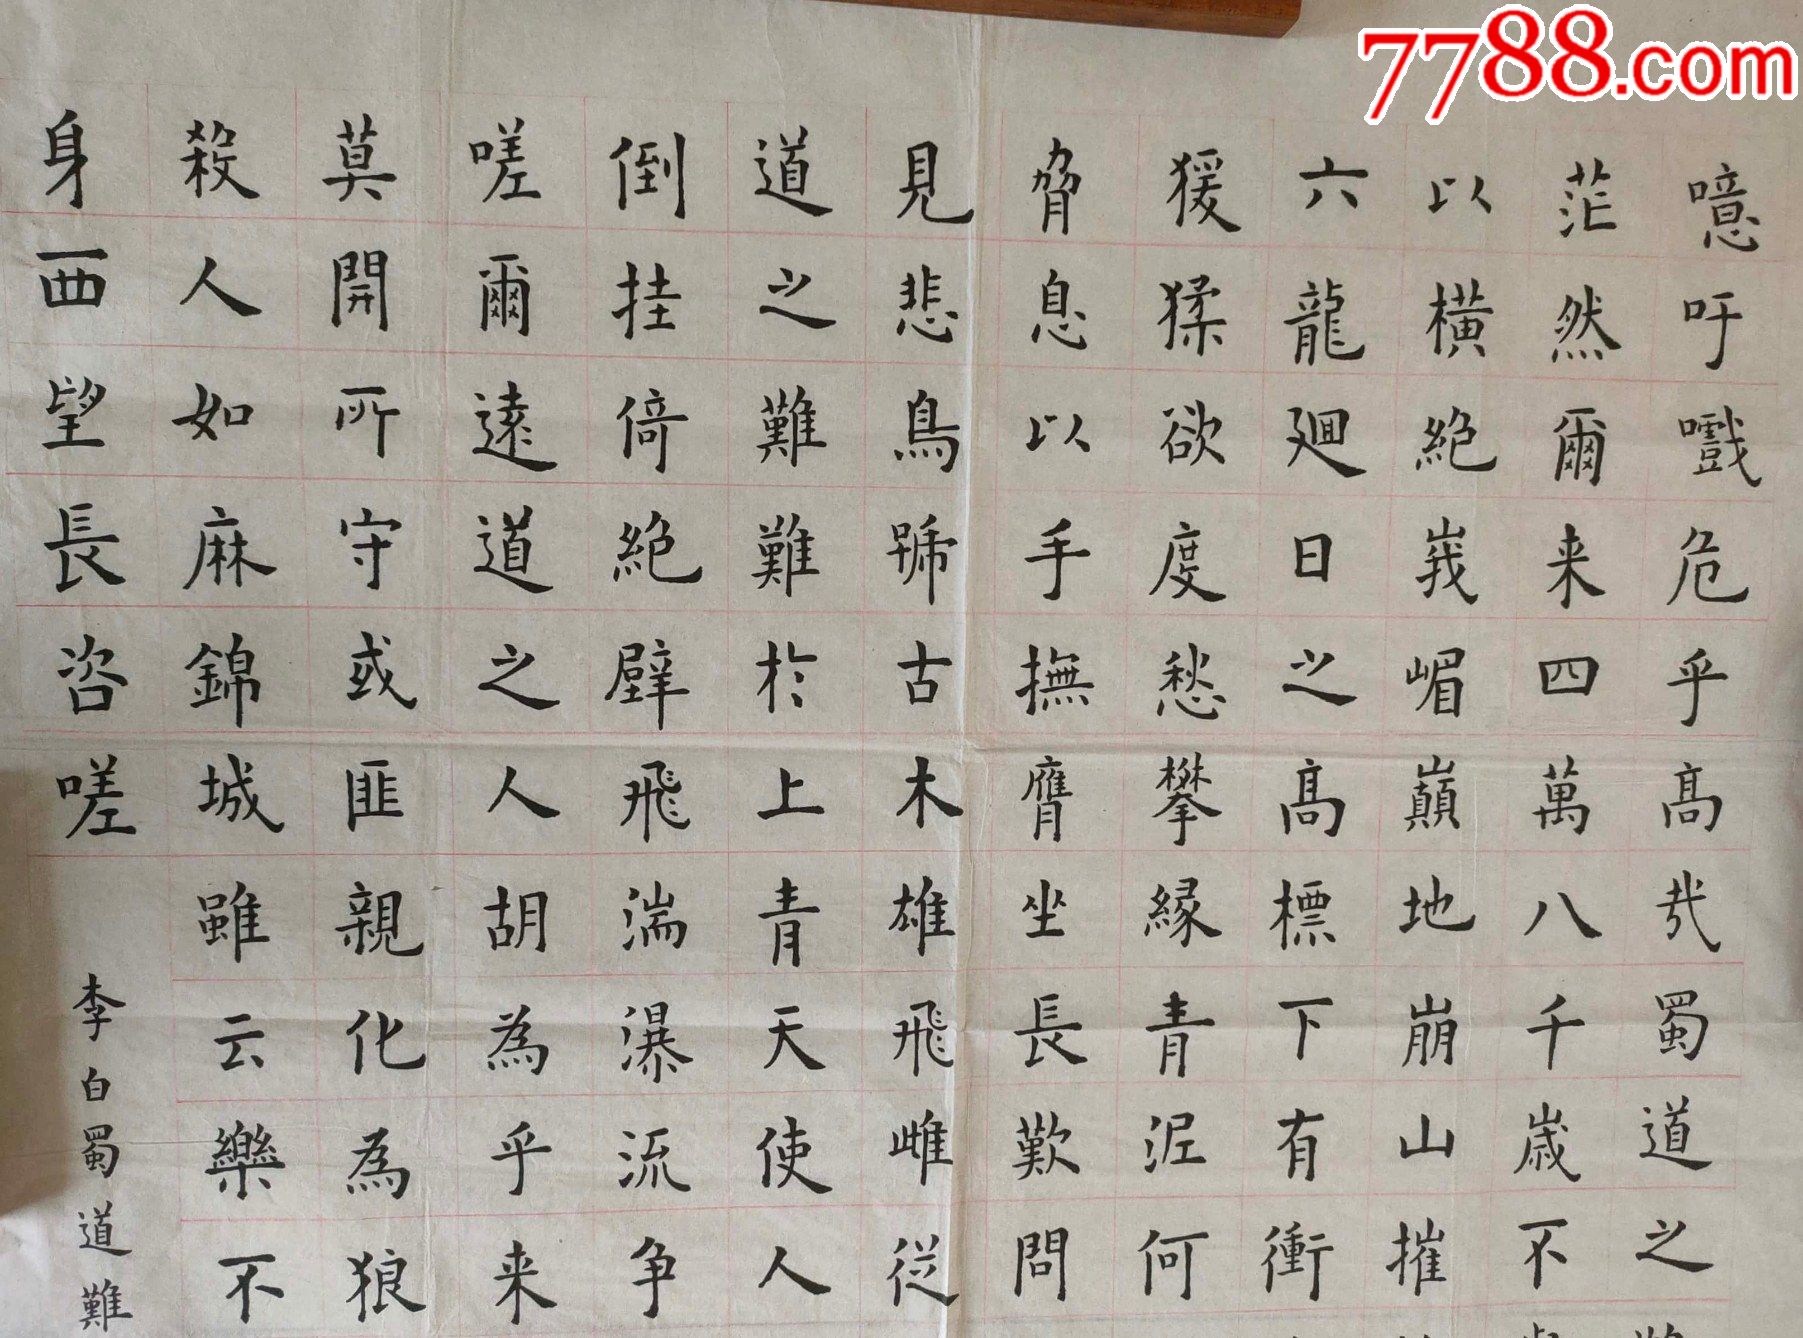 7788.com
噫吁嚱危乎髙哉蜀道之
茫然爾来四萬八千歲不
以橫絕峩嵋巔地崩山摧
六龍廻日之髙標下有衝
猨猱欲度愁攀緣青泥何
脅息以手撫膺坐長歎問
見悲鳥號古木雄飛雌從
道之難難於上青天使人
倒挂倚絕壁飛湍瀑流争
嗟爾遠道之人胡為乎来
莫開所守或匪親化為狼
殺人如麻錦城雖云樂不
身西望長咨嗟
李白蜀道難